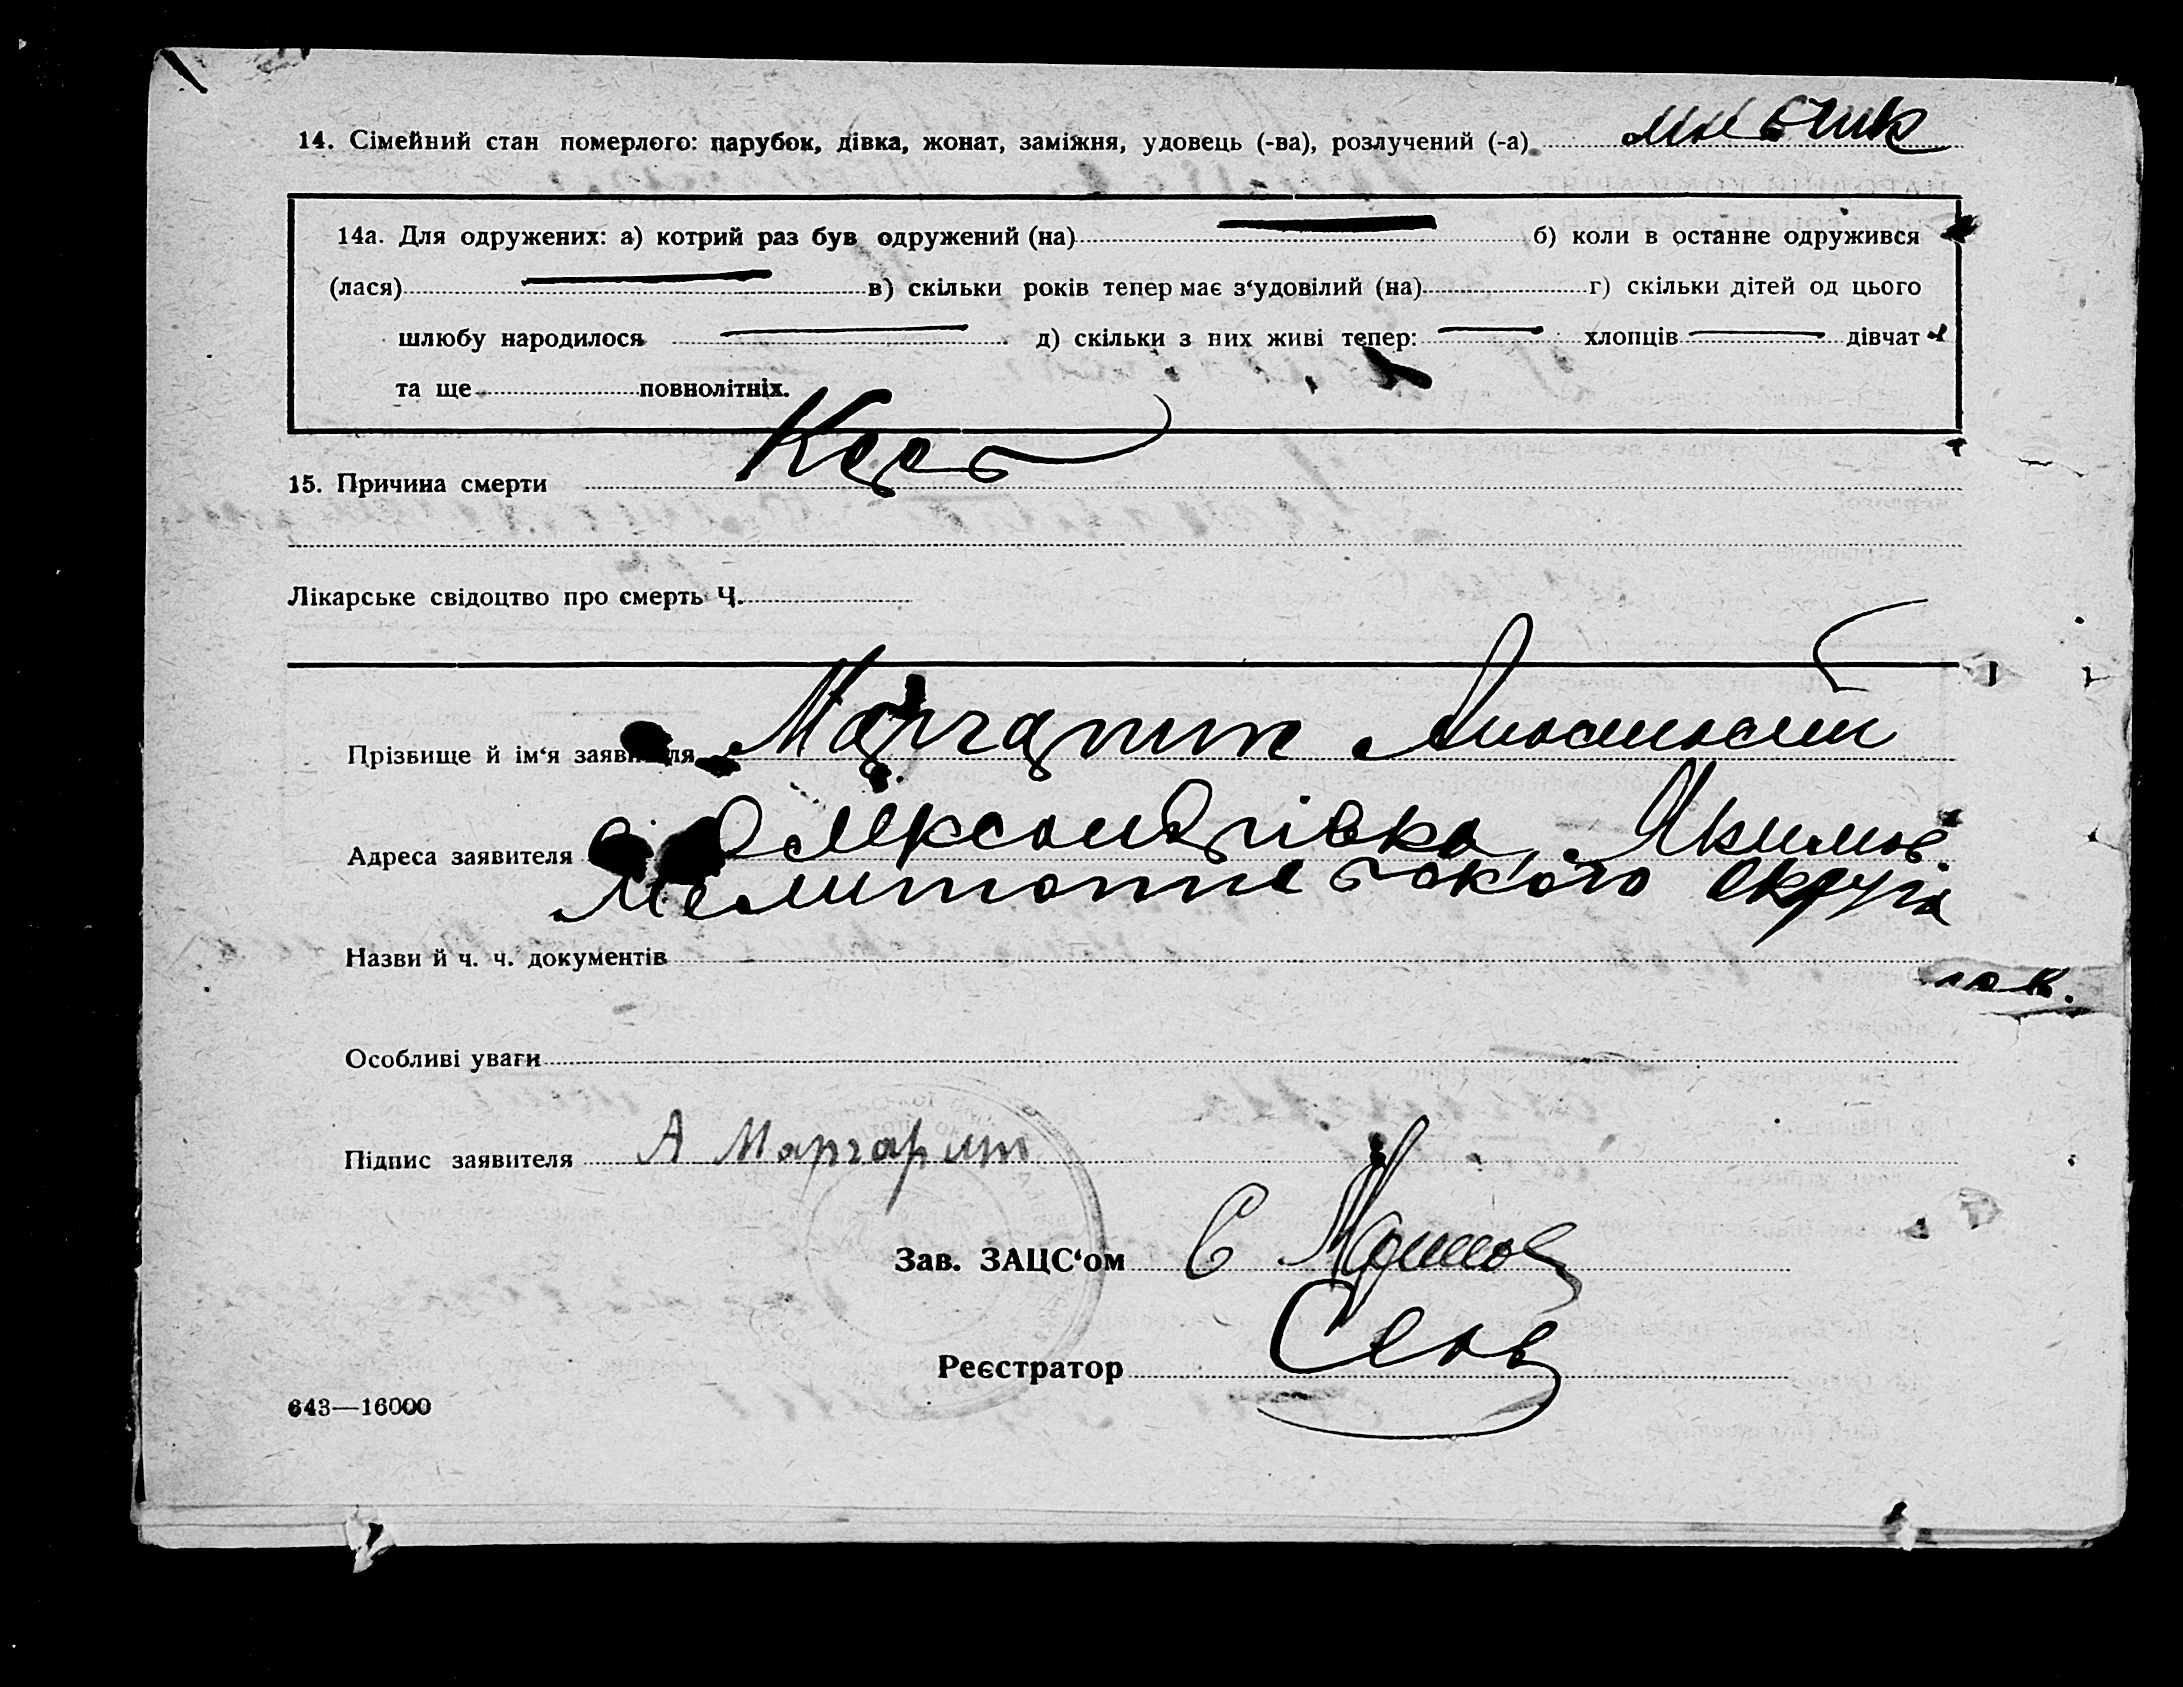 14. Сімейний стан померлого: парубок, дівка, жонат, заміжня, удовець (-ва), розлучений (-а)
14а. Для одружених: а) котрий раз був одружений (на) б) коли в останнє одружився
(лася) в) скільки років тепер має з‘удовілий (на) г) скільки дітей од цього
шлюбу народилося д) скільки з них живі тепер: хлопців дівчат
та ще повнолітніх.
15. Причина смерти Кер
Лікарське свідоцтво про смерть Ч.
Прізвище й ім‘я заявителя Маргарит
Адреса заявителя Олександрівка, Якимов.
Мелитопільського округа
Назви й ч. ч. документів
Особливі уваги
Підпис заявителя А Маргарит
Зав. ЗАЦС‘ом
Реєстратор
643—16000